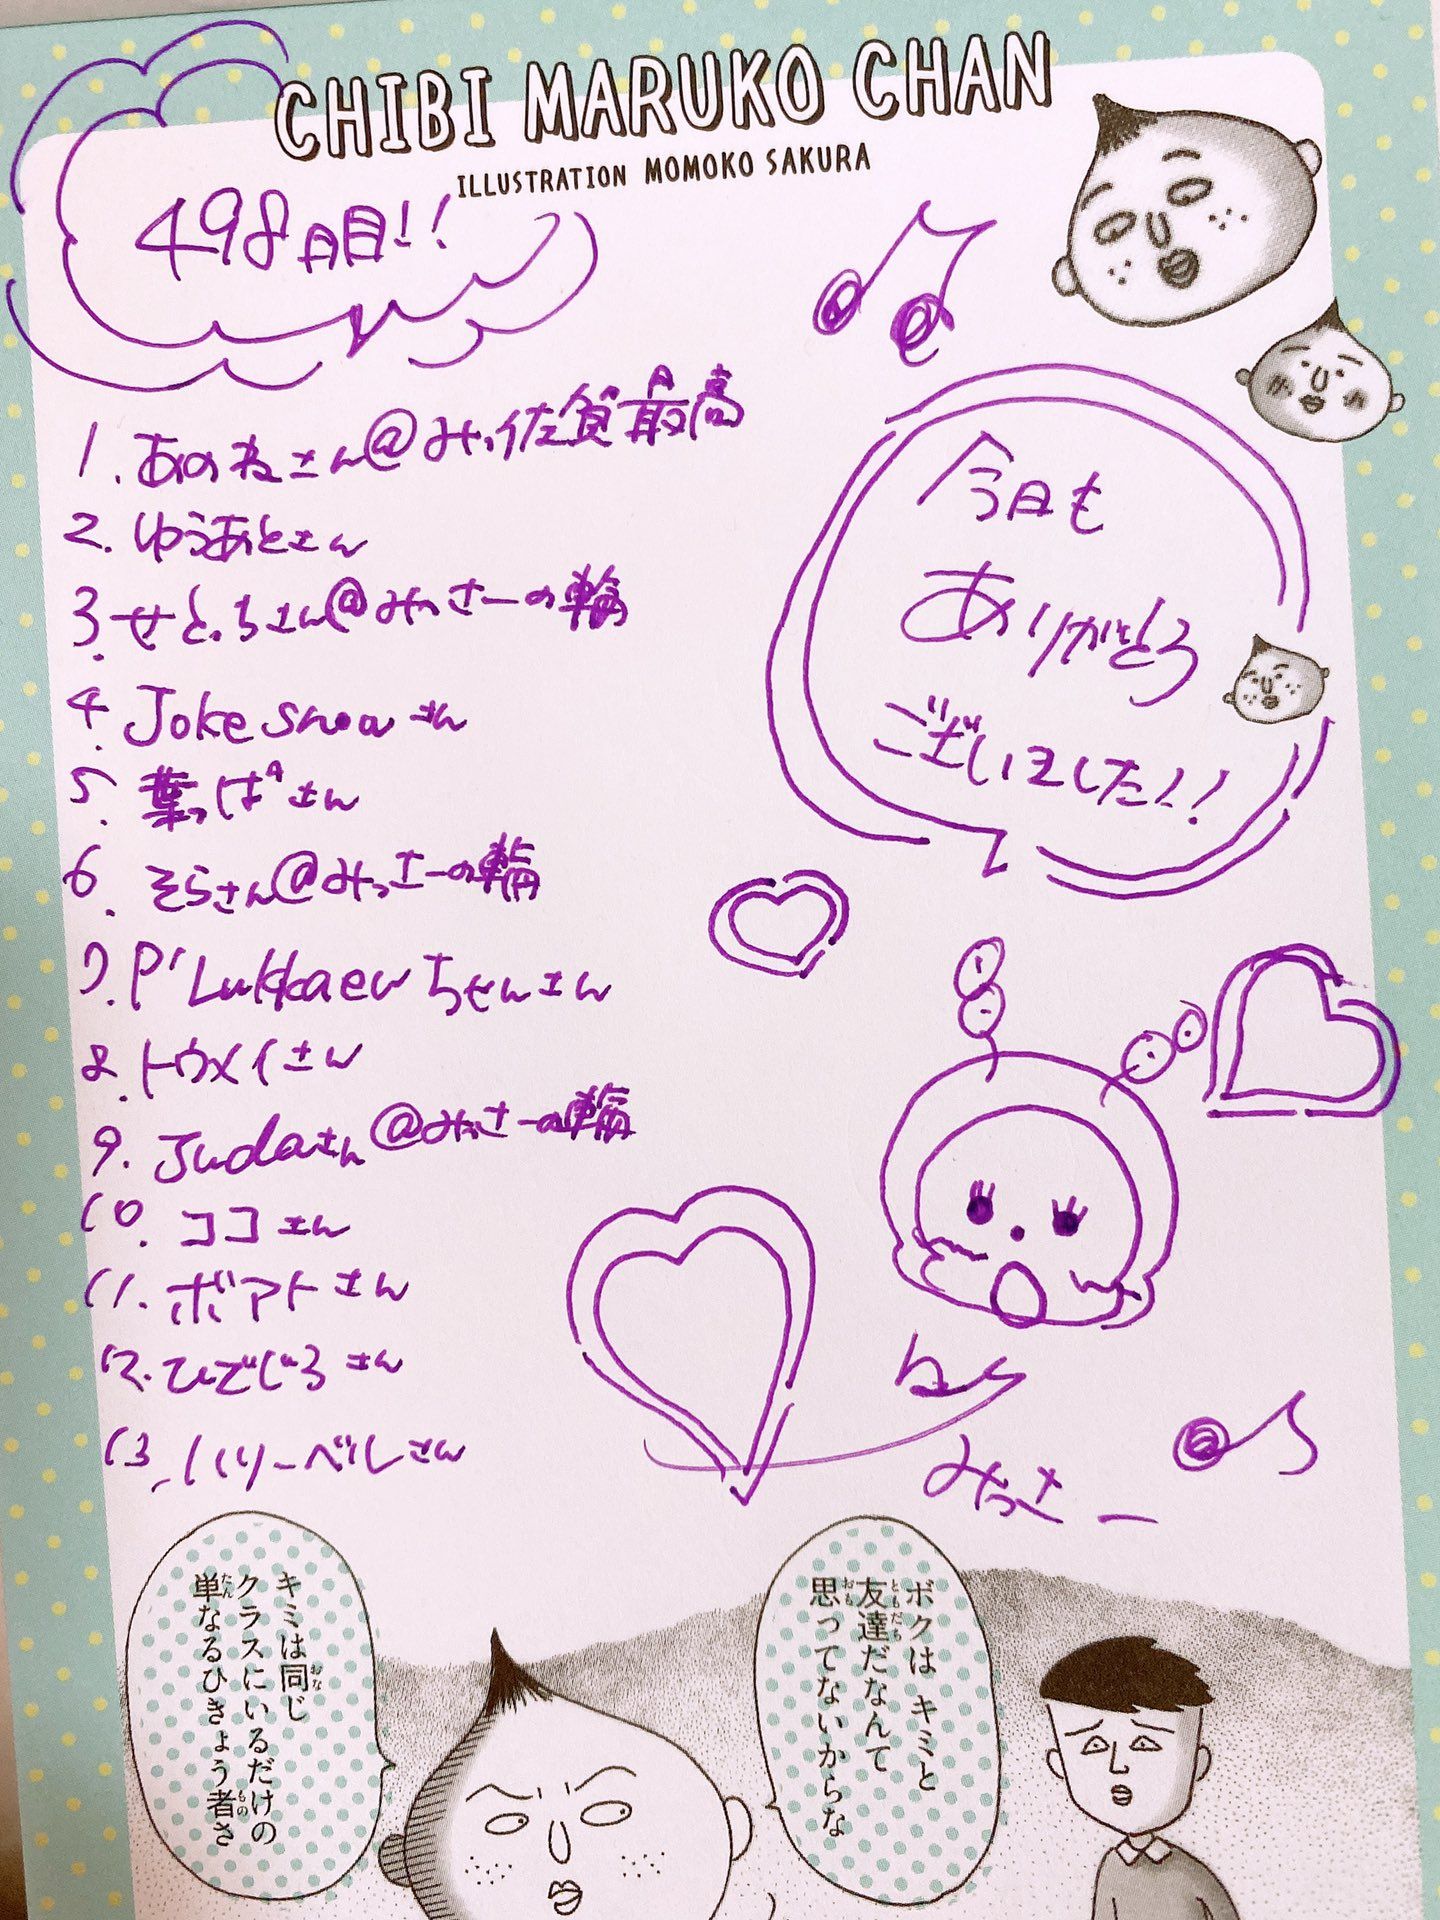 CHIBI MARUKO CHAN
ILLUSTRATION MOMOKO SAKURA
498日目!!
1. あのねさん@みっ佐賀最高
2. ゆうあとさん
3. せとっちさん@みっさーの輪
4. Joke snowさん
5. 葉っぱさん
6. そらさん@みっさーの輪
7. P'Lukkaewちゃんさん
8. トウメイさん
9. Judaさん@みっさーの輪
10. ココさん
11. ボアトさん
12. ひでじろさん
13. ハリーベルさん
今日も
ありがとう
ございました!!
みっさー
ボクはキミと
友達だなんて
思ってないからな
キミは同じ
クラスにいるだけの
単なるひきょう者さ